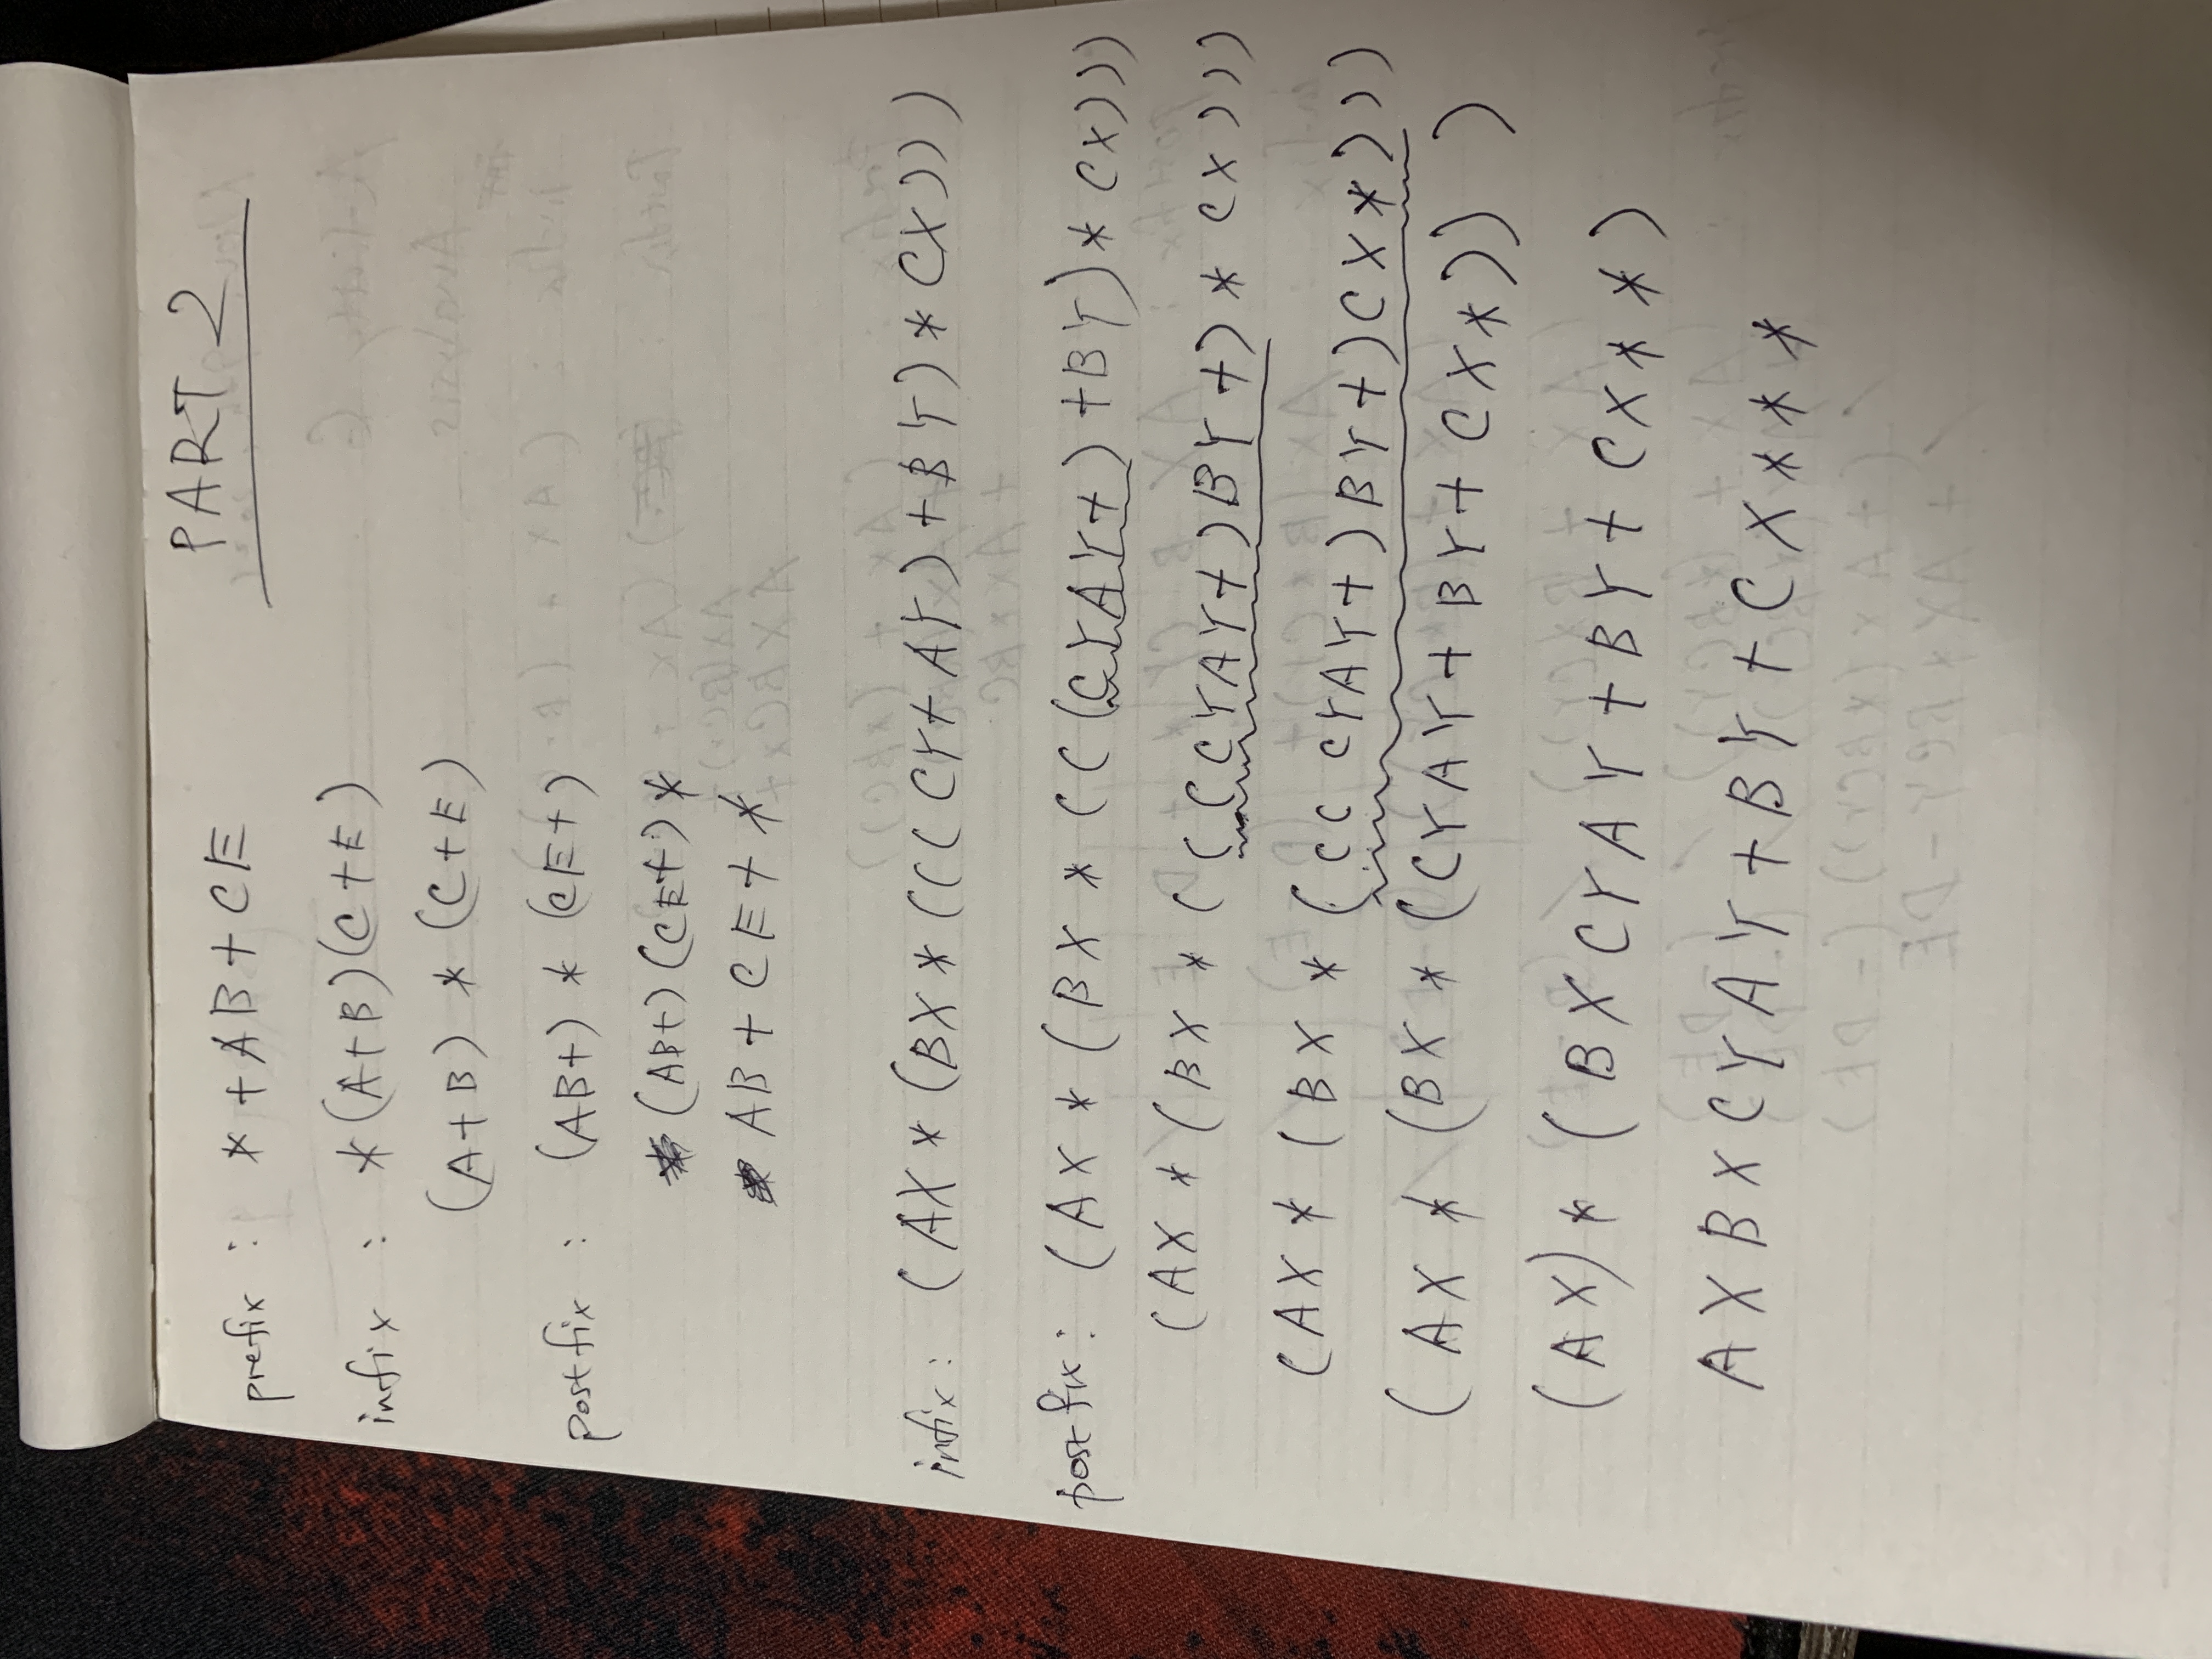 PART 2
prefix : * + A B + C E
infix : * (A + B) (C + E)
(A + B) * (C + E)
postfix : (AB+) * (CE+)
(AB+) (CE+) *
AB + CE + *
infix : (AX * (BX * (((CY + AY) + BY) * CX)))
postfix : (AX * (BX * (((CYAY+) + BY) * CX)))
(AX * (BX * (((CYAY+) BY +) * CX)))
(AX * (BX * (((CYAY+) BY +) CX *)))
(AX * (BX * (CYAY + BY + CX *)))
(AX) * (BXCYAY + BY + CX * *)
AXBXCYAY + BY + CX * * *